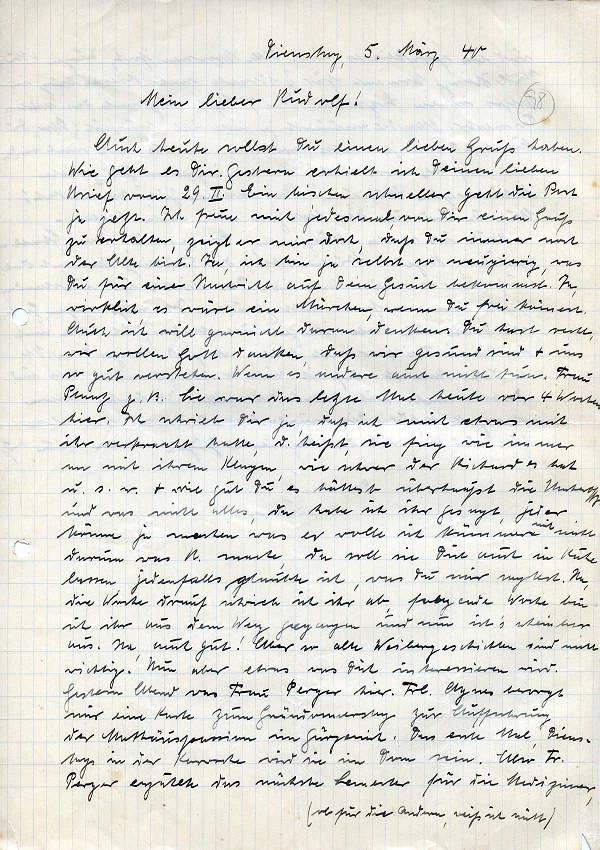 Dienstag, 5. März 40
98
Mein lieber Rudolf!
Auch heute sollst Du einen lieben Gruß haben.
Wie geht es Dir. Gestern erhielt ich Deinen lieben
Brief vom 29. II. Ein bischen schneller geht die Post
ja jetzt. Ich freue mich jedesmal von Dir einen Gruß
zu erhalten, zeigt er mir doch, daß Du immer noch
der Alte bist. Ja, ich bin ja selbst so neugierig, was
Du für eine Nachricht auf Dein Gesuch bekommst. Ja,
wirklich es wäre ein Märchen, wenn Du frei kämest.
Auch ich will garnicht daran denken. Du hast recht,
wir wollen Gott danken, daß wir gesund sind + uns
so gut verstehen. Wenn es andere auch nicht tun. Frau
z. B. Sie war das letzte Mal heute vor 4 Wochen
hier. Ich schrieb Dir ja, daß ich mich etwas mit
ihr verkracht hatte, d. heißt, sie fing wie immer
an mit ihrem Klagen, wie schwer der Richard es hat
u. s. w. + wie gut Du es hättest überhaupt die
und was nicht alles, da habe ich ihr gesagt, jeder
könne ja machen was er wolle ich kümmere mich nicht
darum was R. macht, da soll sie Dich auch in Ruhe
lassen jedenfalls glaubte ich, was Du mir sagtest. Na,
die Woche darauf schrieb ich ihr ab, folgende Woche bin
ich ihr aus dem Weg gegangen und nun ist's scheinbar
aus. Na, auch gut! Aber so alte Weibergeschichten sind nicht
wichtig. Nun aber etwas was Dich interessieren wird.
Gestern Abend war Frau Perger hier. Frl. Agnes besorgt
mir eine Karte zum Gründonnerstag zur Aufführung
der Matthäuspassion im Gürzenich. Das erste Mal, Diens-
tags in der Karwoche wird sie im Dom sein. Also Fr.
Perger erzählte das nächste Semester für die Mediziner,
(ob für die Andern, weiß ich nicht)